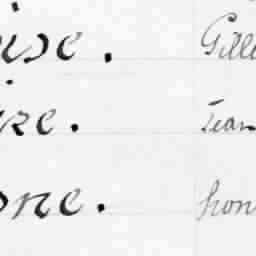 ise. Gill
ire. Jean
one. hon